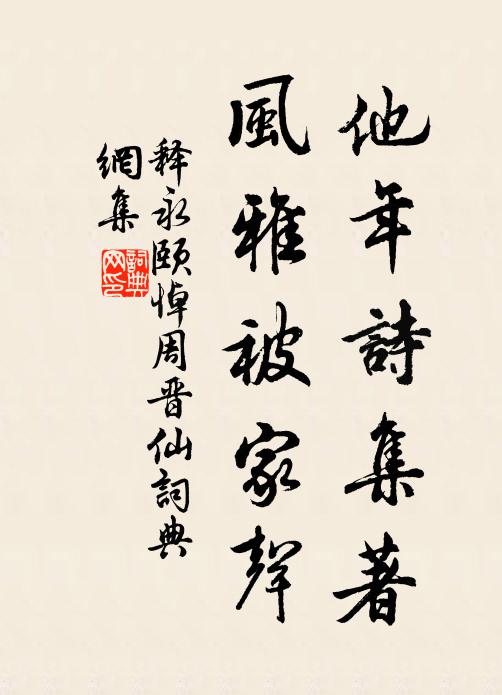 他年詩集著
風雅被家聲
释永颐悼周晋仙詞典
網集
詞典
网印